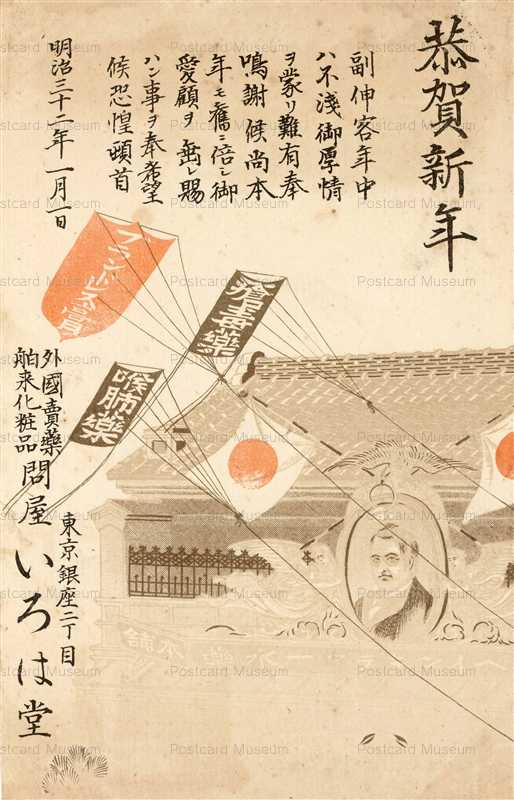 恭賀新年
副伸客年中
ハ不淺御厚情
ヲ蒙リ難有奉
鳴謝候尚本
年モ舊ニ倍シ御
愛顧ヲ垂レ賜
ハン事ヲ奉希望
候恐惶頓首
明治三十二年一月一日
瘡毒藥
喉肺藥
外國賣藥
舶来化粧品
問屋
東京銀座二丁目
いろは堂
Postcard Museum